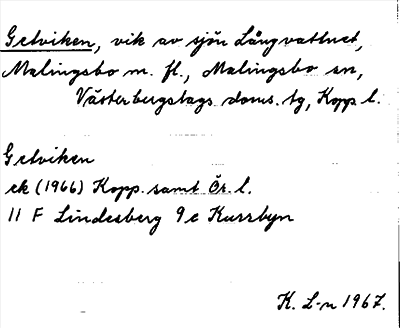 Getviken, vik av sjön Långvattnet,
Malingsbo m. fl., Malingsbo sn,
Västerbergslags doms. tg, Kopp. l.
Getviken
ek (1966) Kopp. samt Ör. l.
11 F Lindesberg 9 e Kussbyn
K. L-n 1967.